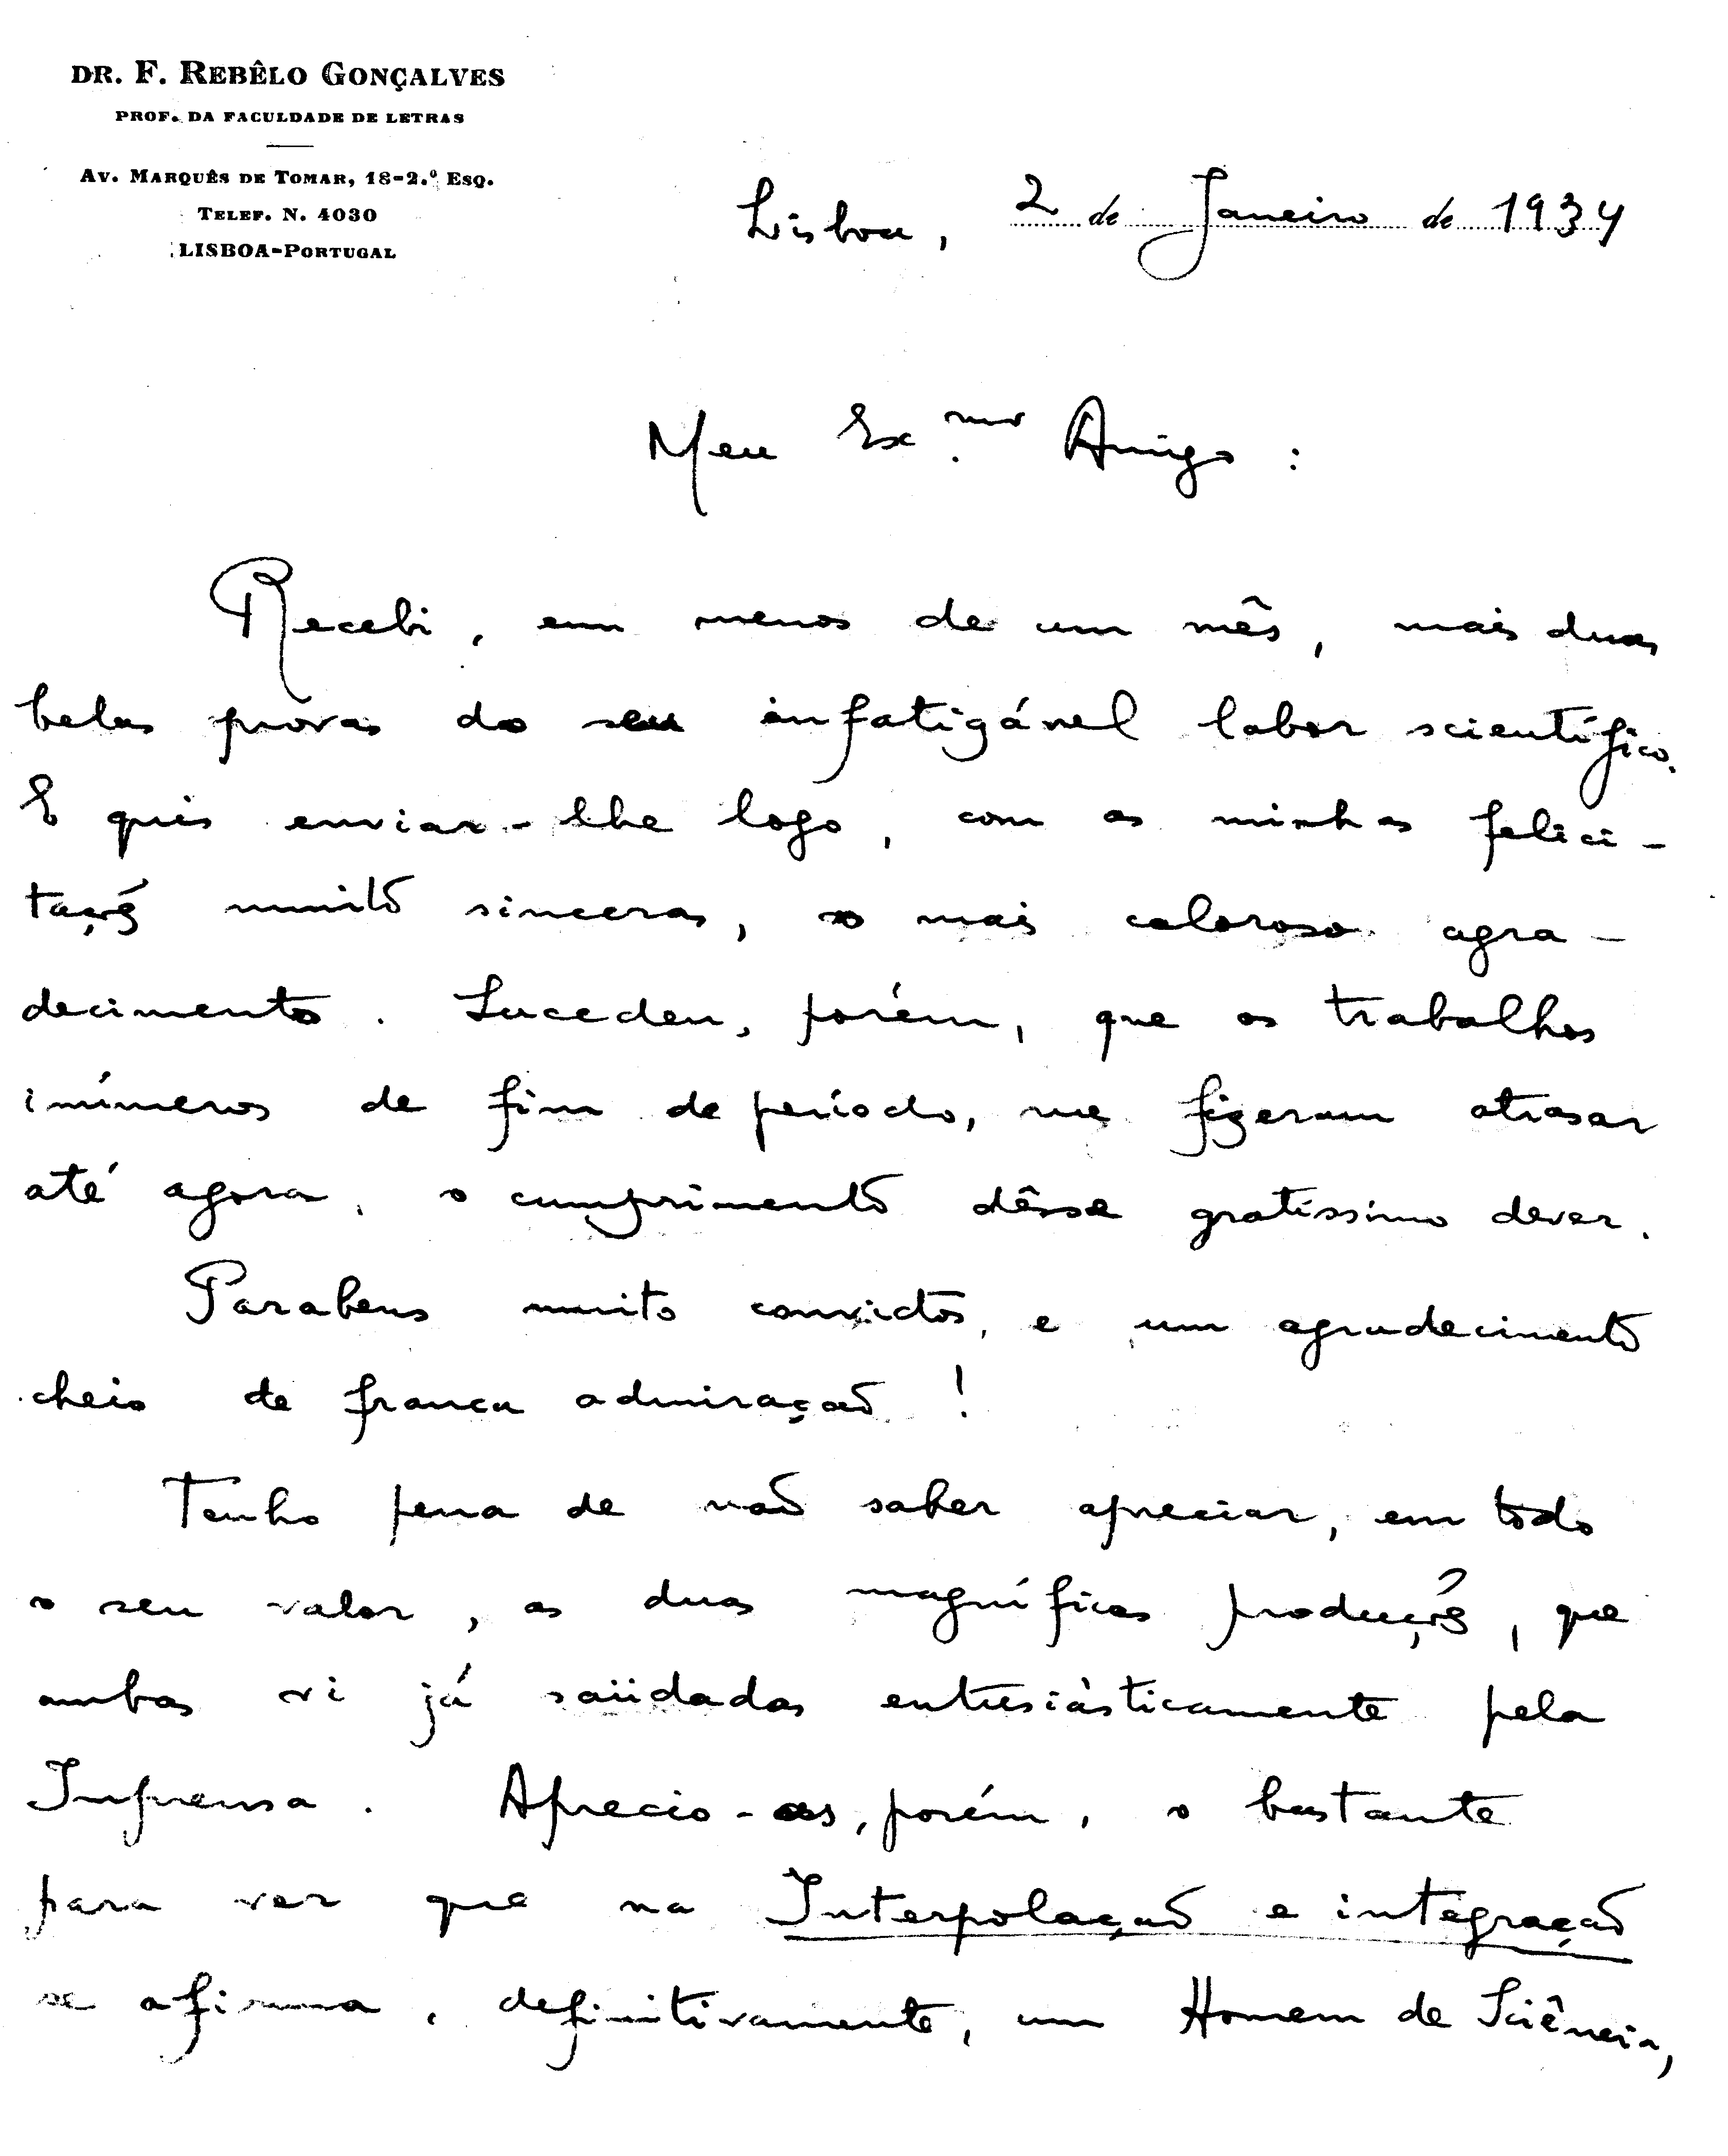 DR. F. REBÊLO GONÇALVES
PROF. DA FACULDADE DE LETRAS
AV. MARQUÊS DE TOMAR, 18-2.º ESQ.
TELEF. N. 4030
LISBOA-PORTUGAL
Lisboa, 2 de Janeiro de 1934
Meu Ex.mo Amigo:
Recebi, em menos de um mês, mais duas
belas provas do seu infatigável labor scientífico.
E quis enviar-lhe logo, com as minhas felici-
tações muito sinceras, o mais caloroso agra-
decimento. Sucedeu, porém, que os trabalhos
inúmeros de fim de período, me fizeram atrasar
até agora, o cumprimento dêsse gratíssimo dever.
Parabens muito convictos, e um agradecimento
cheio de franca admiração!
Tenho pena de não saber apreciar, em todo
o seu valor, as duas magníficas produções, que
ambas vi já saüdadas entusiàsticamente pela
Imprensa. Aprecio-as, porém, o bastante
para ver que na Interpolação e integração
se afirma, definitivamente, um Homem de Sciência,